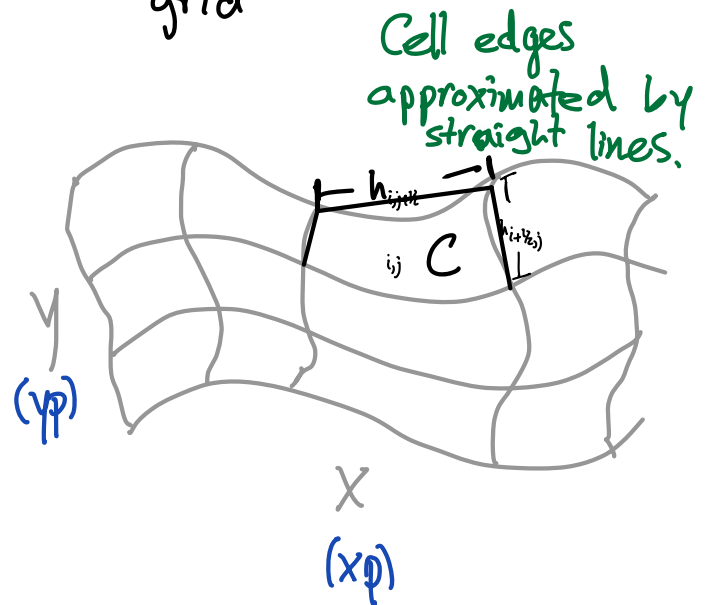 grid
Cell edges
approximated by
straight lines.
h i,j+½
h i+½,j
i,j C
Y
(yp)
X
(xp)